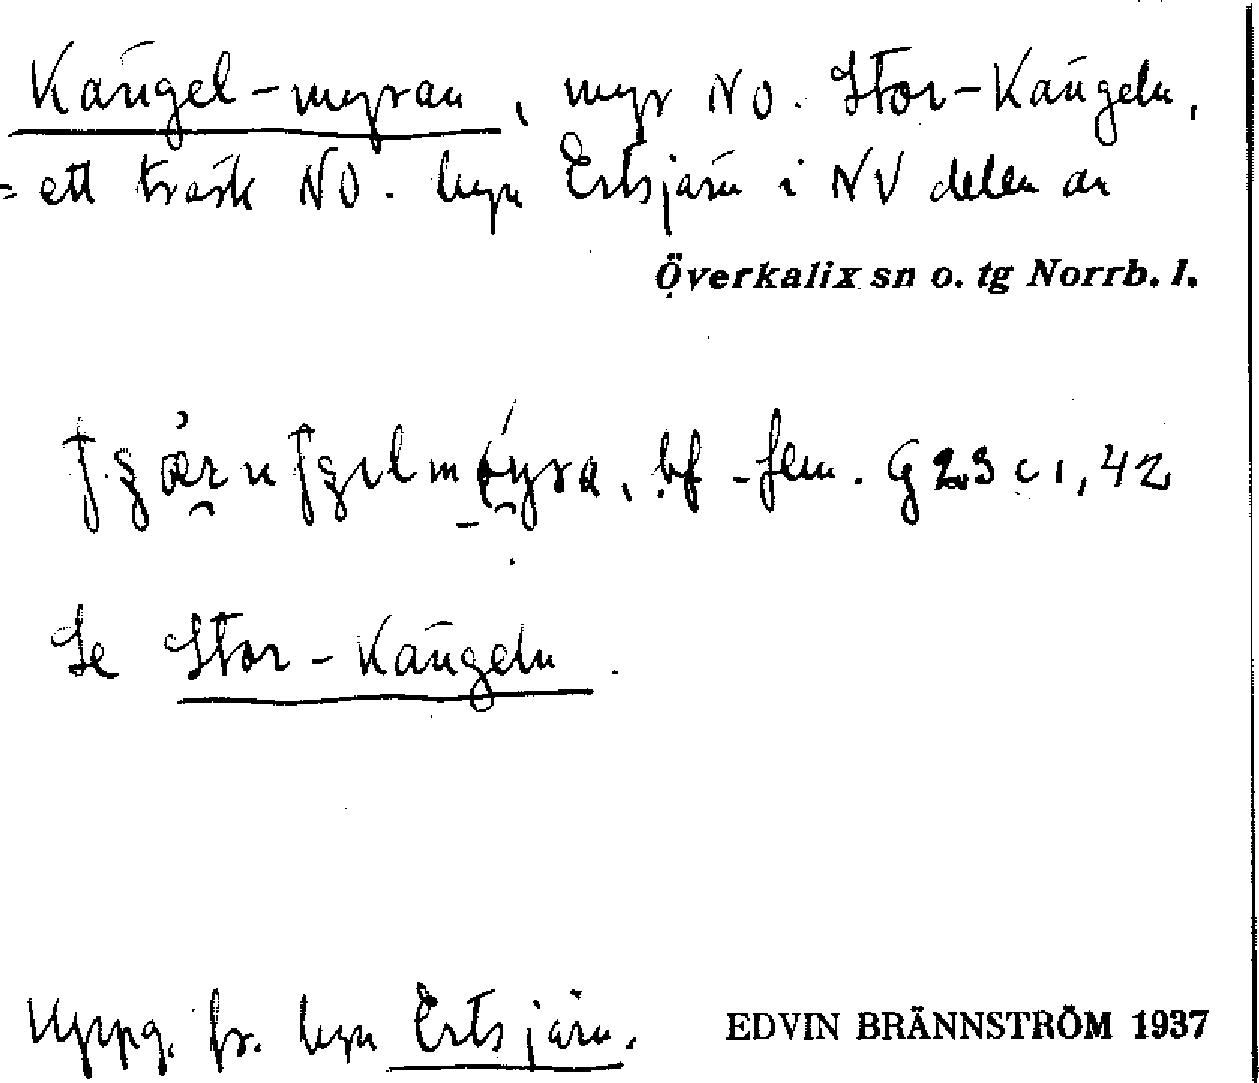 Kängel-myran, myr NO. Stor-Kängeln,
= ett träsk NO. byn Ertsjärv i NV delen av
Överkalix sn o. tg Norrb. l.
bf -flm. G 23 c 1, 42
Se Stor-Kängeln.
Uppg. fr. byn Ertsjärv. EDVIN BRÄNNSTRÖM 1937